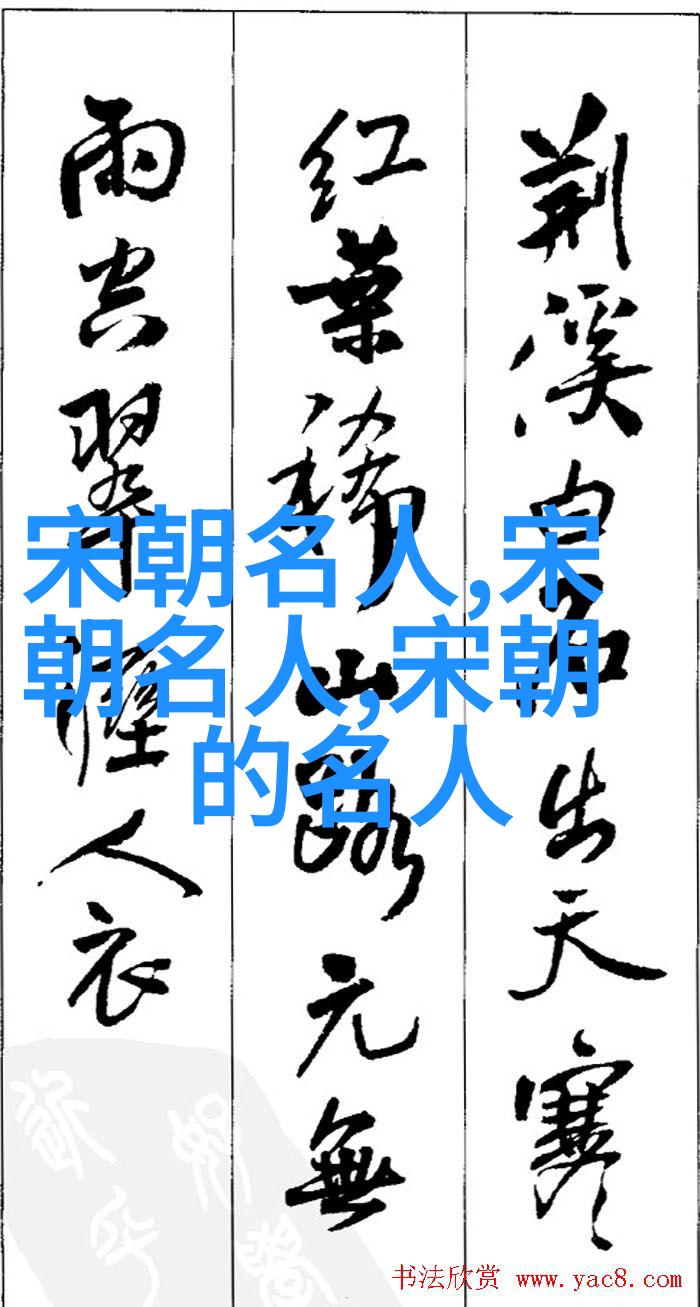 荆溪白石出天寒
红葉稀山路元無
雨空翠溼人衣
宋朝名人,宋
朝名人,宋朝
的名人
书法欣赏 www.yac8.com